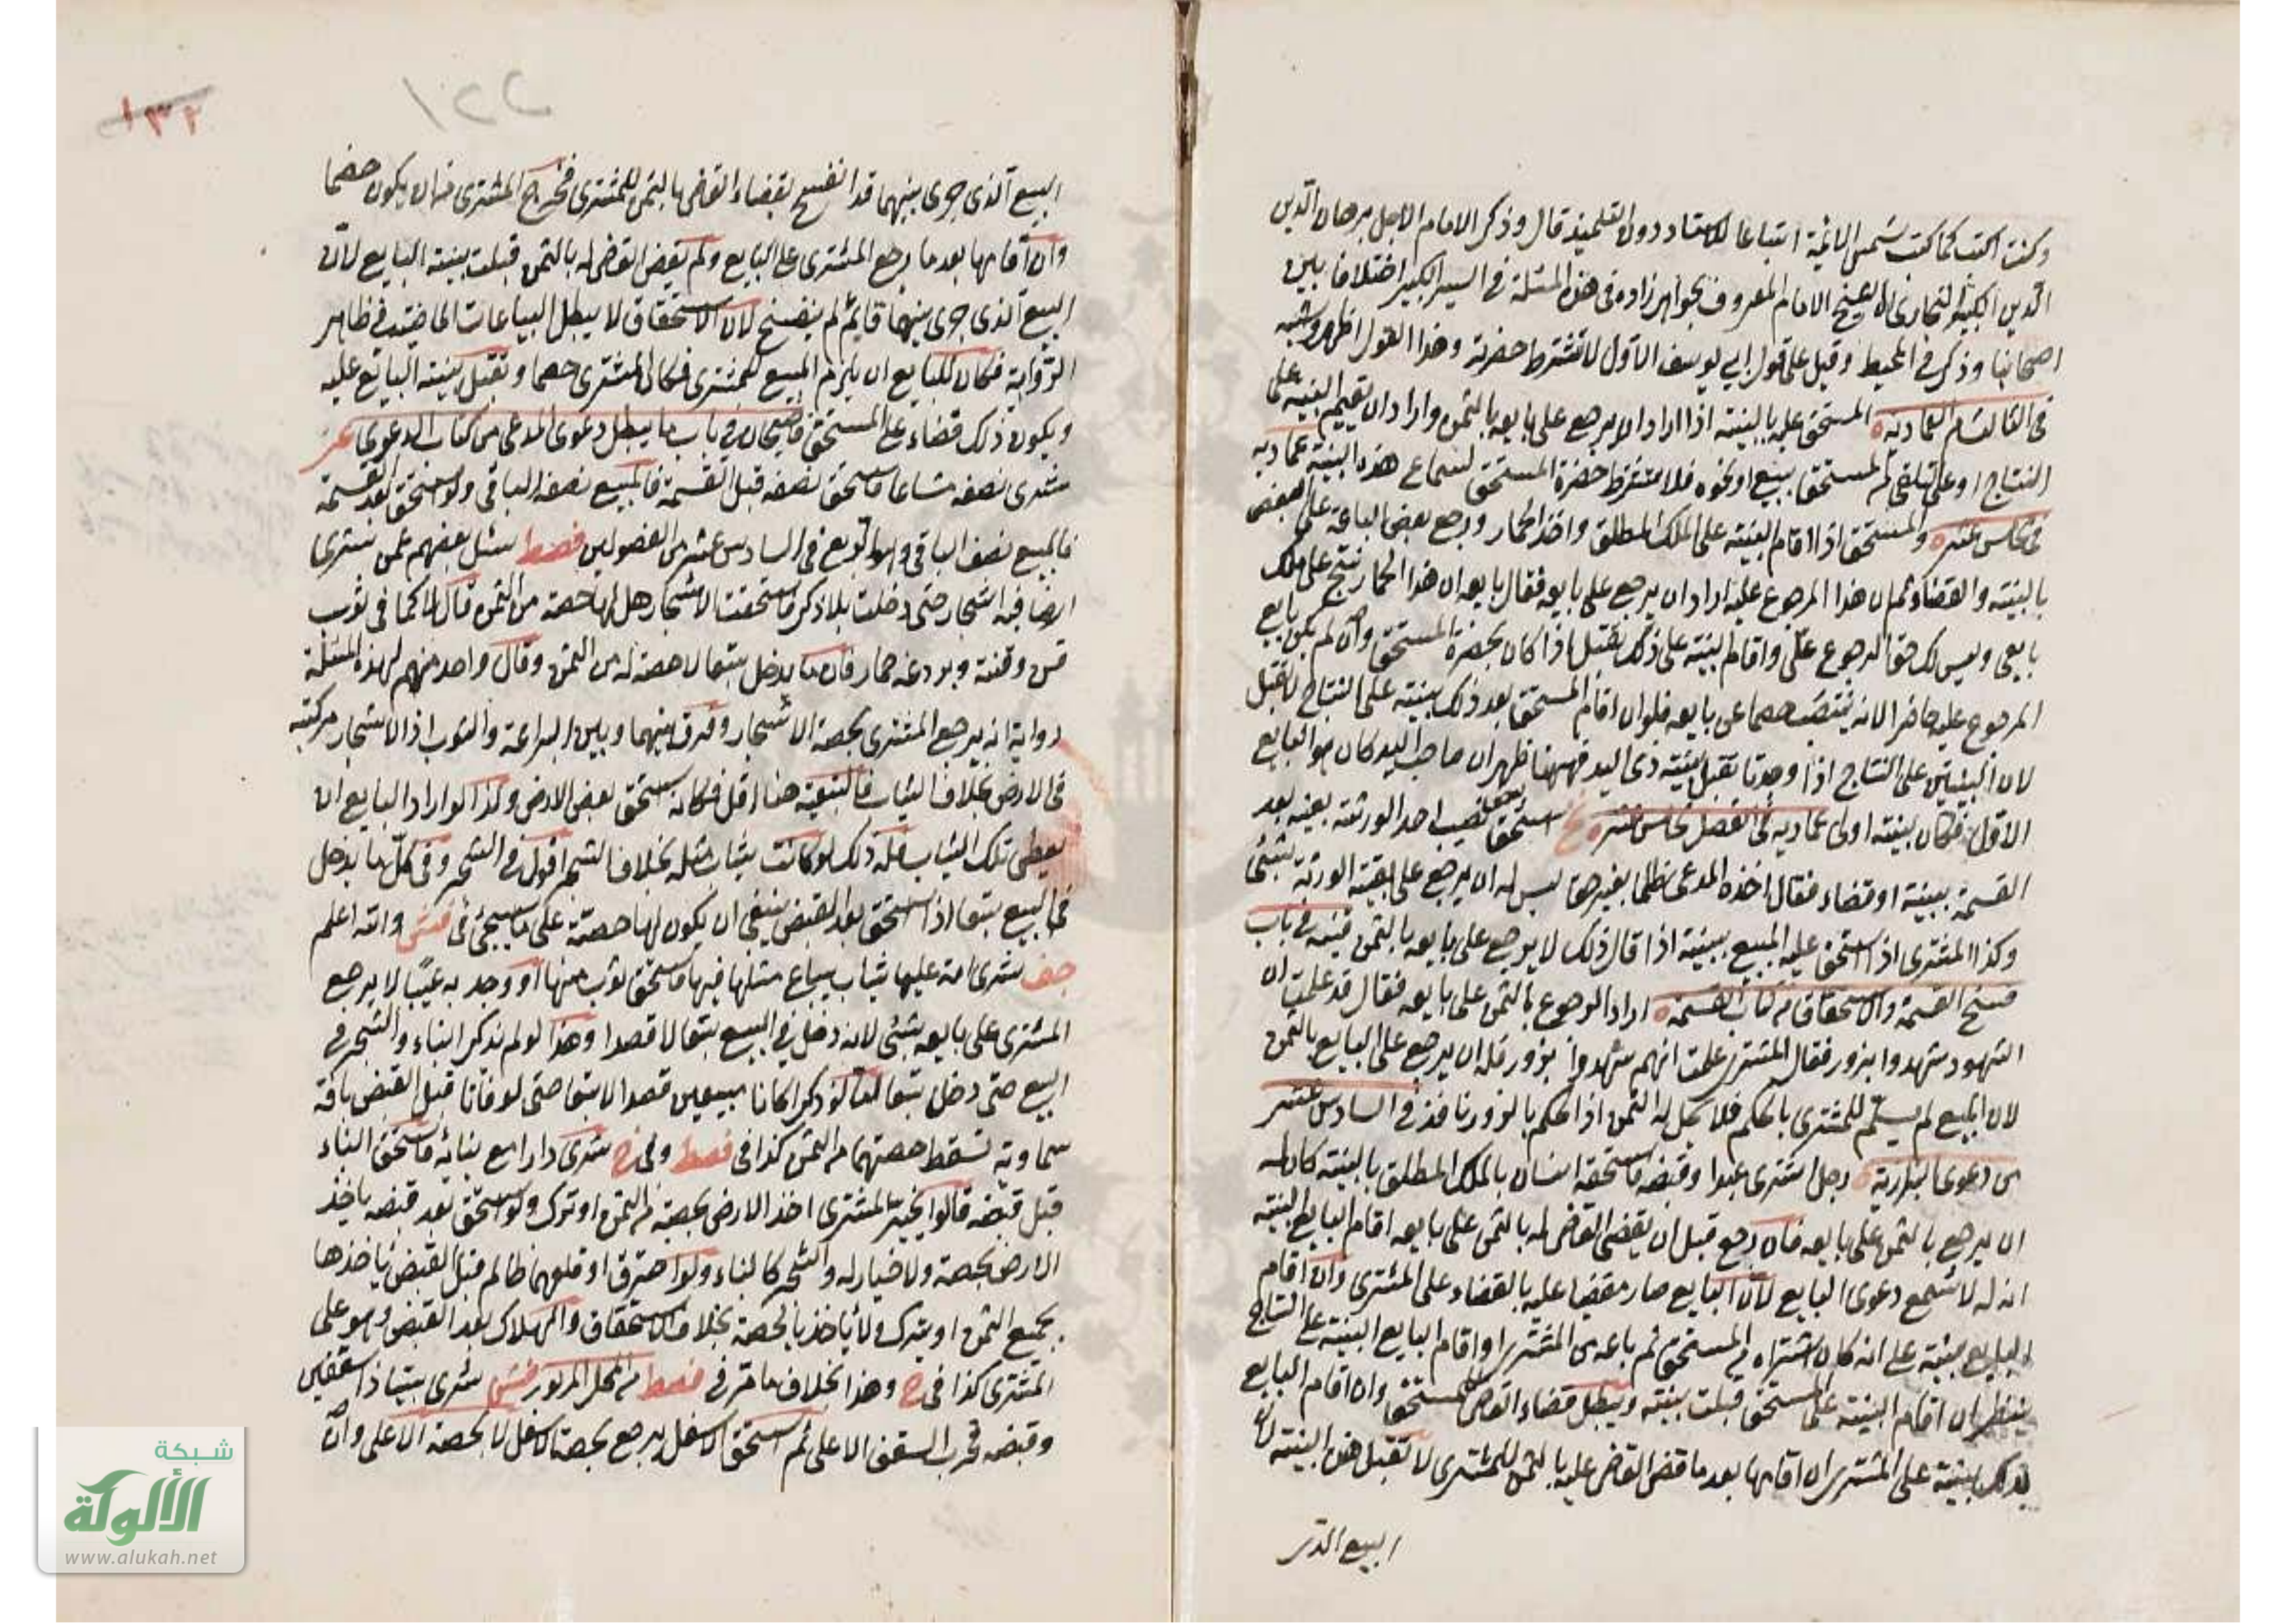 وكنت اكتب كما كتب شمس الائمة اتباعا للاستاد دون التلميذ قال وذكر الامام الاجل برهان الدين
الدين الكبير البخارى ان الشيخ الامام المعروف بخواهر زاده فى هذه المسئلة فى السير الكبير اختلافا بين
اصحابنا وذكر فى المحيط وقيل على قول ابي يوسف الاول لا تشترط حضرته وهذا القول اظهر واشبه
فى الثالث من العمادية المستحق عليه بالبينة اذا اراد ان يرجع على بايعه بالثمن واراد ان يقيم البينة على
النتاج او على تلقى من المستحق ببيع او نحوه فلا تشترط حضرة المستحق لسماع هذه البينة عماديه
فى خامس عشر والمستحق اذا اقام البينة على الملك المطلق واخذ الحمار ورجع بعض الباعة على البعض
بالبينة والقضاء ثم ان هذا المرجوع عليه اراد ان يرجع على بايعه فقال بايعه ان هذا الحمار نتج على ملك
بايعى وليس لك حق الرجوع على واقام البينة على ذلك يقبل اذا كان بحضرة المستحق وان لم يكن بايع
المرجوع عليه حاضرا لانه ينتصب خصما عن بايعه فلو ان اقام المستحق بعد ذلك بينته على النتاج لا تقبل
لان البينتين على النتاج اذا وجدتا تقبل بينة ذى اليد فههنا ظهر ان صاحب اليد كان هو البايع
الاول فكان بينته اولى عماديه فى الفصل خامس عشر استحق بعض نصيب احد الورثة بعينه بعد
القسمة ببينة او قضاء فقال اخذه المدعى ظلما بغير حق ليس له ان يرجع على بقية الورثة بشئ
وكذا المشترى اذا استحق عليه المبيع ببينة اذا قال ذلك لا يرجع على بايعه بالثمن قنيه فى باب
فسخ القسمة والاستحقاق من كتاب القسمة اراد الرجوع بالثمن على بايعه فقال قد علمت ان
الشهود شهدوا بزور فقال المشترى علمت انهم شهدوا بزور فله ان يرجع على البايع بالثمن
لان المبيع لم يسلم للمشترى بالحكم فلا يحل له الثمن اذ الحكم بالزور نافذ فى السادس عشر
من دعوى البزازية رجل اشترى عبدا وقبضه فاستحقه انسان بالملك المطلق بالبينة كان له
ان يرجع بالثمن على بايعه فان رجع قبل ان يقضى القاضى له بالثمن على بايعه اقام البايع البينة
انه له لا تسمع دعوى البايع لان البايع صار مقضيا عليه بالقضاء على المشترى وان اقام
البايع بينة على انه كان اشتراه من المستحق ثم باعه من المشترى او اقام البايع البينة على النتاج
ينظر ان اقام البينة على المستحق قبلت بينته ويبطل قضاء القاضى للمستحق وان اقام البايع
بذلك بينة على المشترى ان اقامها بعد ما قضى القاضى عليه بالثمن للمشترى لا تقبل هذه البينة لان
البيع الذى
٢٢١
١٣٢
البيع الذى جرى بينهما قد انفسخ بقضاء القاضى بالثمن للمشترى فخرج المشترى من ان يكون خصما
وان اقامها بعد ما رجع المشترى على البايع ولم يقض القاضى له بالثمن قبلت بينة البايع لان
البيع الذى جرى بينهما قايم لم ينفسخ لان الاستحقاق لا يبطل البياعات الماضية فى ظاهر
الرواية فكان للبايع ان يلزم المبيع للمشترى فكان المشترى خصما وتقبل بينة البايع عليه
ويكون ذلك قضاء على المستحق قاضيخان فى باب ما يبطل دعوى المدعى من كتاب الدعوى
شرى نصفه مشاعا فاستحق نصفه قبل القسمة فالمبيع نصفه الباقى ولو استحق بعد القسمة
فالمبيع نصف الباقى فى السادس عشر من الفصولين فصط سئل بعضهم عمن شترى
ارضا فيه اشجار حتى دخلت بلا ذكر فاستحقت الاشجار هل لها حصة من الثمن قال لا كما فى ثوب
قن وقنة وبردعة حمار فان ما يدخل تبعا لا حصة له من الثمن وقال واحد منهم لهذه المسئلة
رواية انه يرجع المشترى بحصة الاشجار وفرق بينهما وبين البردعة والثوب اذ الاشجار مركبة
فى الارض بخلاف الثياب فالتبعية هنا اقل فكانه استحق بعض الارض وكذا لو اراد البايع ان
يعطى تلك الثياب فله ذلك لو كانت ثياب مثله بخلاف الشجر اقول فى الشجر وفى كل ما يدخل
فى المبيع تبعا اذا استحق بعد القبض ينبغى ان يكون لها حصة على ما سيجئ فى والله اعلم
جف شرى امة عليها ثياب يباع مثلها فيها فاستحق ثوب منها او وجد به عيبا لا يرجع
المشترى على بايعه بشئ لانه دخل فى البيع تبعا لا قصدا وهذا لو لم يذكر البناء والشجر فى
البيع حتى دخل تبعا اما لو ذكرا كانا مبيعين قصدا لا تبعا حتى لو فاتا قبل القبض بافة
سماوية تسقط حصتهما من الثمن كذا فى فصط وفى شرى دارا مع بنائه فاستحق البناء
قبل قبضه قالوا يخير المشترى اخذ الارض بحصته من الثمن او ترك ولو استحق بعد قبضه ياخذ
الارض بحصة ولا خيار له والشجر كالبناء ولو احترق او قلعهما ظالم قبل القبض ياخذها
بجميع الثمن او يترك ولا ياخذ بالحصة بخلاف الاستحقاق والهلاك بعد القبض وهو على
المشترى كذا فى وهذا بخلاف ما مر فى فصط من المحل المزبور شرى بيتا ذا سقفين
وقبضه فخرب السقف الاعلى ثم استحق الاسفل يرجع بحصة الاسفل لا بحصة الاعلى وان
شبكة
الألوكة
www.alukah.net